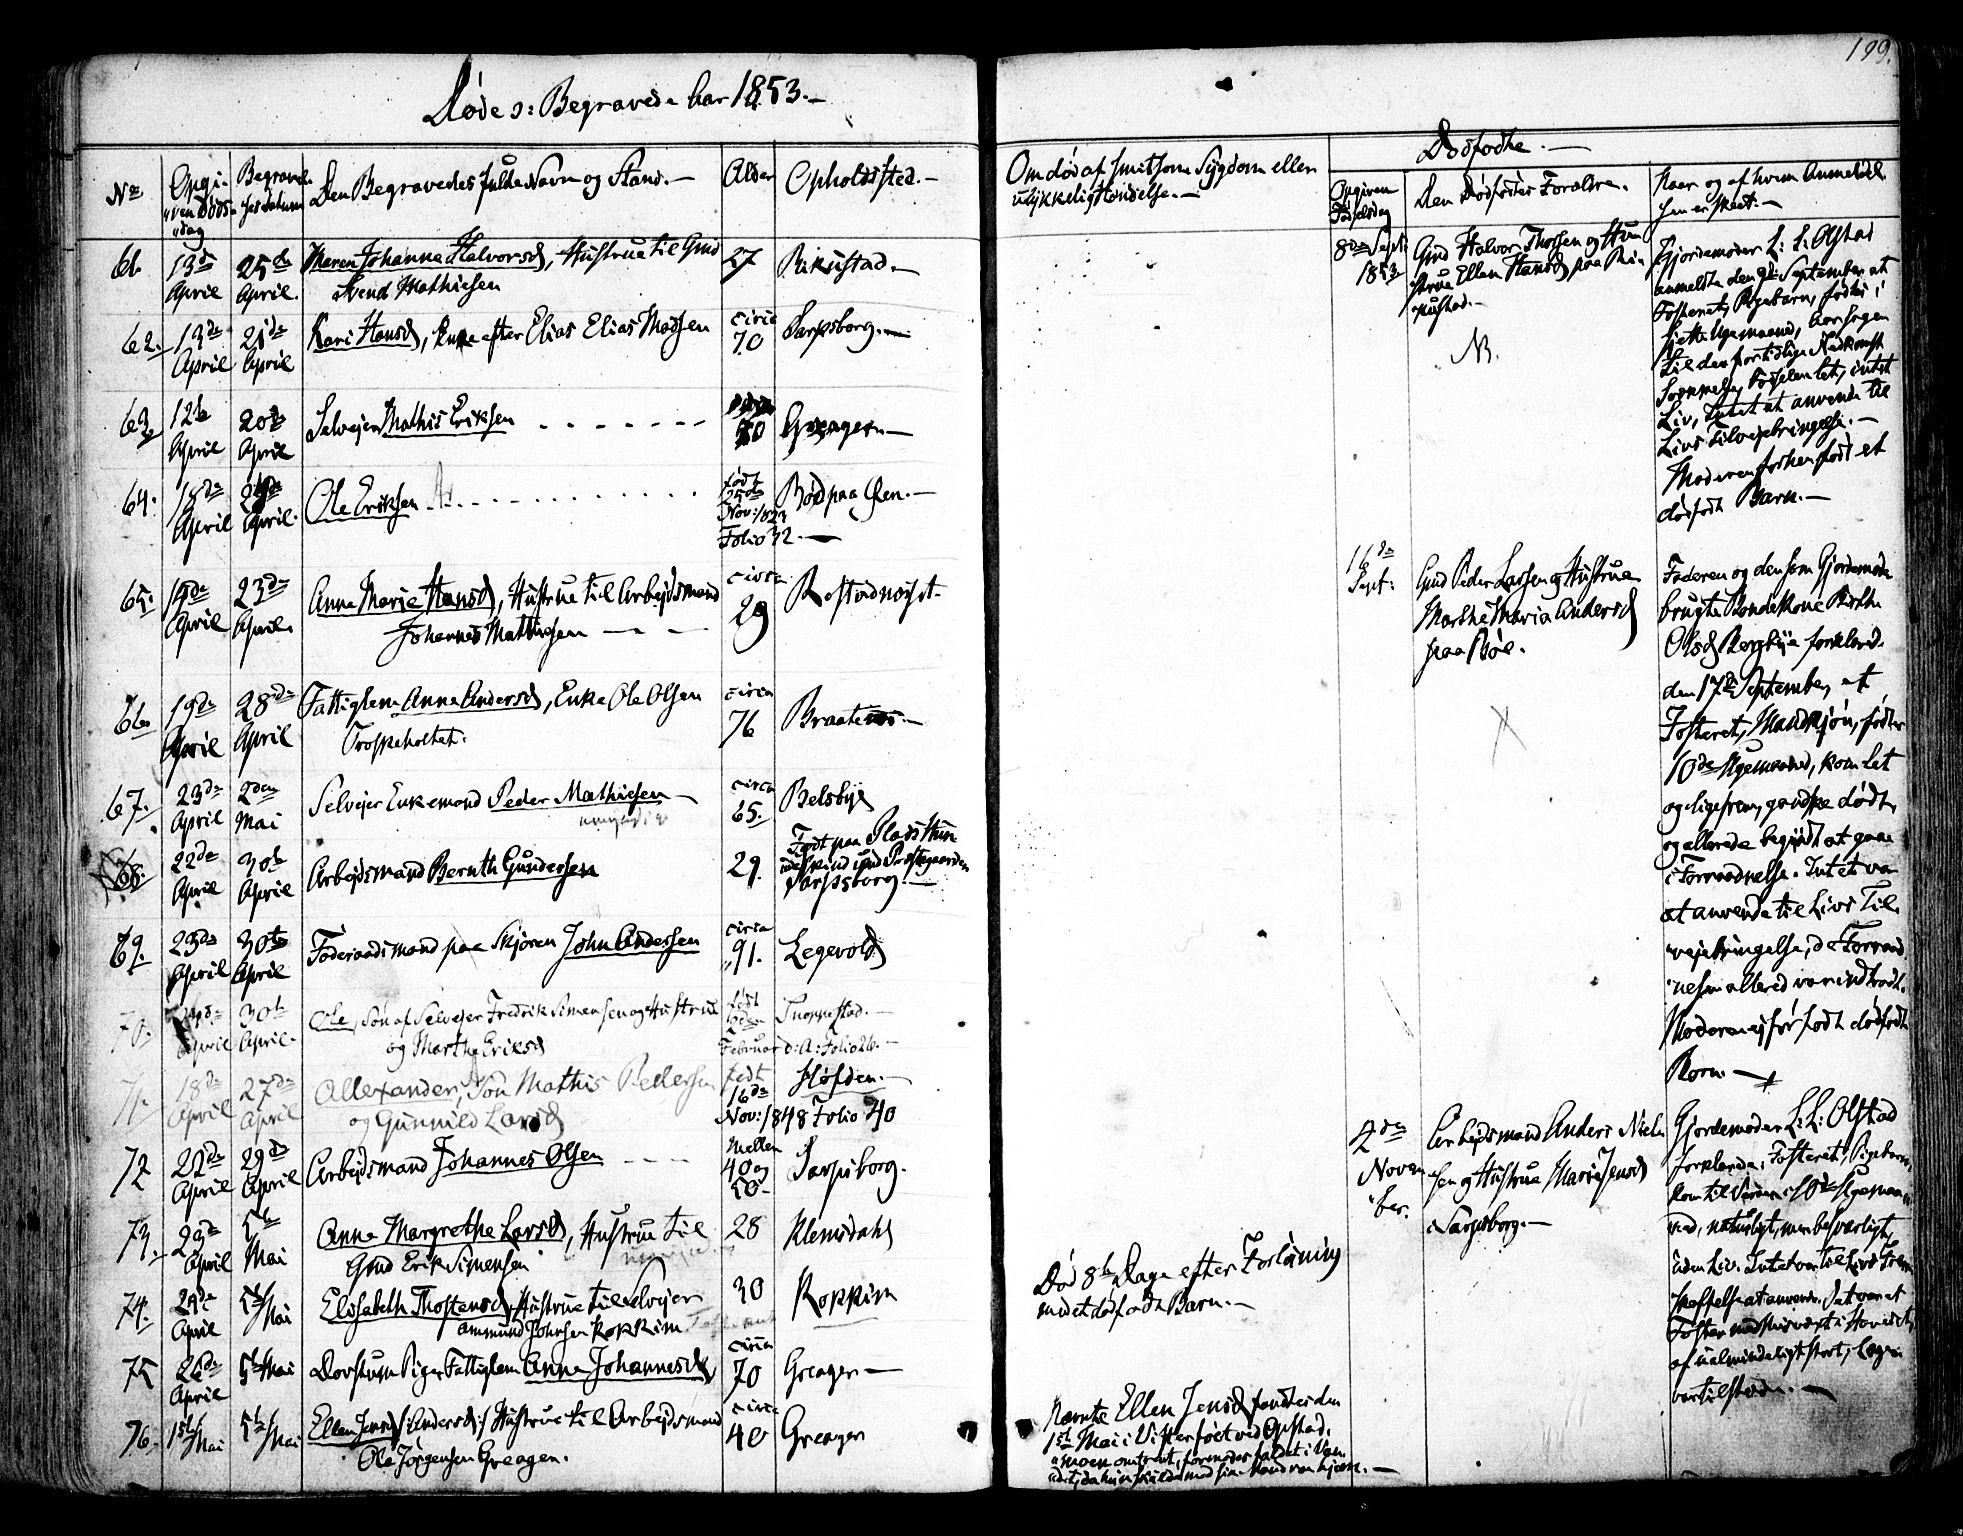 199.
Døde ɔ: Begravede har 1853.-
No
Opgi-
"ven Døds-
"dag
Begravel-
ses datum
Den Begravedes fulde Navn og Stand.-
Alder
Opholdssted.-
Om død af smitsom Sygdom eller
ulykkelig Hændelse.-
Dødfødte.-
Opgiven
Fødselsdag
Den Dødfødtes Forældre.
Naar og af hvem Anmeldel-
sen er skeet.-
61. 13de April 25de April. Maren Johanne Halvorsd, Hustrue til Gmd
Svend Mathiesen
27 Rikustad.-
62. 19de April 21de April Kari Hansd, Enke efter Elias Elias Madsen circa 70 Sarpsborg.-
63. 12te April 20de April Selveier Mathis Eriksen 50 Greager.-
64. 18de April April. Ole Eriksen født
25de
Nov:
Folio 32.-
Bød paa Øen.-
65. 19de April 23de April. Anne Marie Hansd, Hustrue til Arbeidsmand
Johannes Mathisen - - -
circa 29
66. 19de April 28de April Fattiglem Anne Andersd, Enke Ole Olsen
Troskeholtet.
circa 76 Braaten.-
67. 23de April 2den Mai Selveier Enkemand Peder Mathiesen - circa 65. Belsbye
68. 22de April 30te April Arbeidsmand Bernth Gundersen 29. Født paa Plads
Sarpsborg.-
69. 23de April 30te April Føderaadsmand paa Skjøren John Andersen circa 91. Legevold
70. April 30te April. Ole, Søn af Selveier Fredrik Simensen og Hustrue
og Marthe Eriksd
født
Februar d: A: Folio 26.-
Tnoppestad.-
71. 18de April 27de April Allexander, Søn Mathis Pedersen
og Gunnild Larsd
født
16de
Nov: 1848 Folio 40
Høfden.-
72 22de April 29de April Arbeidsmand Johannes Olsen - - - Mellem
40 og
50.-
Sarpsborg.
73. 29de April 5te Mai Anne Margrethe Larsd, Hustrue til
Gmd Erik Simensen
28 Klemsdahl
74. 29de April 5te Mai Elisabeth Thostensd, Hustrue til Selveier
Ammund Johnsen Kopkim
30 Kopkim
Død 8te Dage efter Forløsning
med et dødfødt Barn.-
75 26de April 5te Mai Døvstum Pige Fattiglem Anne Johannesd, circa 70 Greager -
76. 1ste Mai 5te Mai Ellen Jensd /: Andersd :/ Hustrue til Arbeidsmand
Ole Jørgensen Greagen.
circa 40 Greager
Nævnte Ellen Jensd fandtes den
1ste Mai i Vister ved
omtrent, formodes faldet i Van-
det, da hun med sin Mand var hjem.-
8de Sept:
1853
Gmd Halvor Thorsen og Hu-
strue Ellen Hansd paa Rik-
kustad.-
NB.
Gjordemoder L: L: Olstad
anmeldte den 9de September at
Fosteret, Pigebarn, fødtes i
sjette Ugemaaned,
til den fortidlige Nedkomst
Fødselen let, intet
Liv, Intet at anvende til
Livs Tilveiebringelse.-
Moderen før hen født et
dødfødt Barn.-
16de
Sept:
Gmd Peder Larsen og Hustrue
Marthe Maria Andersd
paa Bøe.
Faderen og den som Gjordemoder
brugte Bondekone
Olsd Borgbye forklared.
den 17de September, at
Fosteret, Mandkjøn, fødtes
10de Ugemaaned, kom let
og ligefrem, ganske dødt,
og allerede begyndt at gaae
i Forraadnelse. Intet var
at anvende til Livs Til-
"veiebringelse, da Forraad-
"nelsen allered var indtraadt.
Moderen ei før født dødfødt
Børn.-
2den
Novem-
"ber.
Arbeidsmand Anders Niel-
sen og Hustrue Marie Jensd
i Sarpsborg.-
Gjordemoder L: L: Olstad
forklarede: Fosteret, Pigebarn,
kom til Verden i 10de Ugemaa-
ned, naturligt, men besværligt,
uden Liv. Intet var til Livs Frem-
skaffelse at anvende. Det var et
Foster med Misvæxt i Hovedet,
af ualmindeligt stort, Lægen
var tilstæde.-